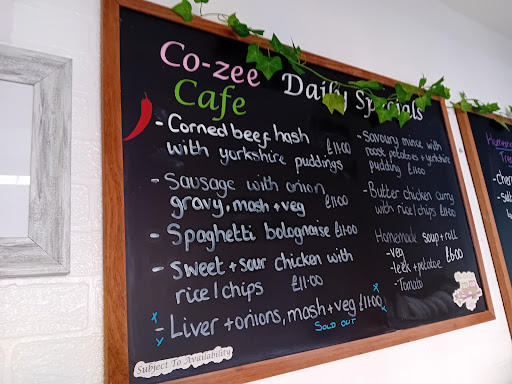 Co-zee Daily Specials
Cafe
- Corned beef hash
with yorkshire puddings £11.00
- Sausage with onion
gravy, mash + veg £11.00
- Spaghetti bolognaise £11.00
- Sweet + sour chicken with
rice / chips £11.00
- Liver + onions, mash + veg £11.00
SOLD OUT
Subject To Availability
- Savoury mince with
roast potatoes + yorkshire
pudding £11.00
- Butter chicken curry
with rice / chips £11.00
Homemade soup + roll
- veg £6.00
- leek + potatoe
- Tomato